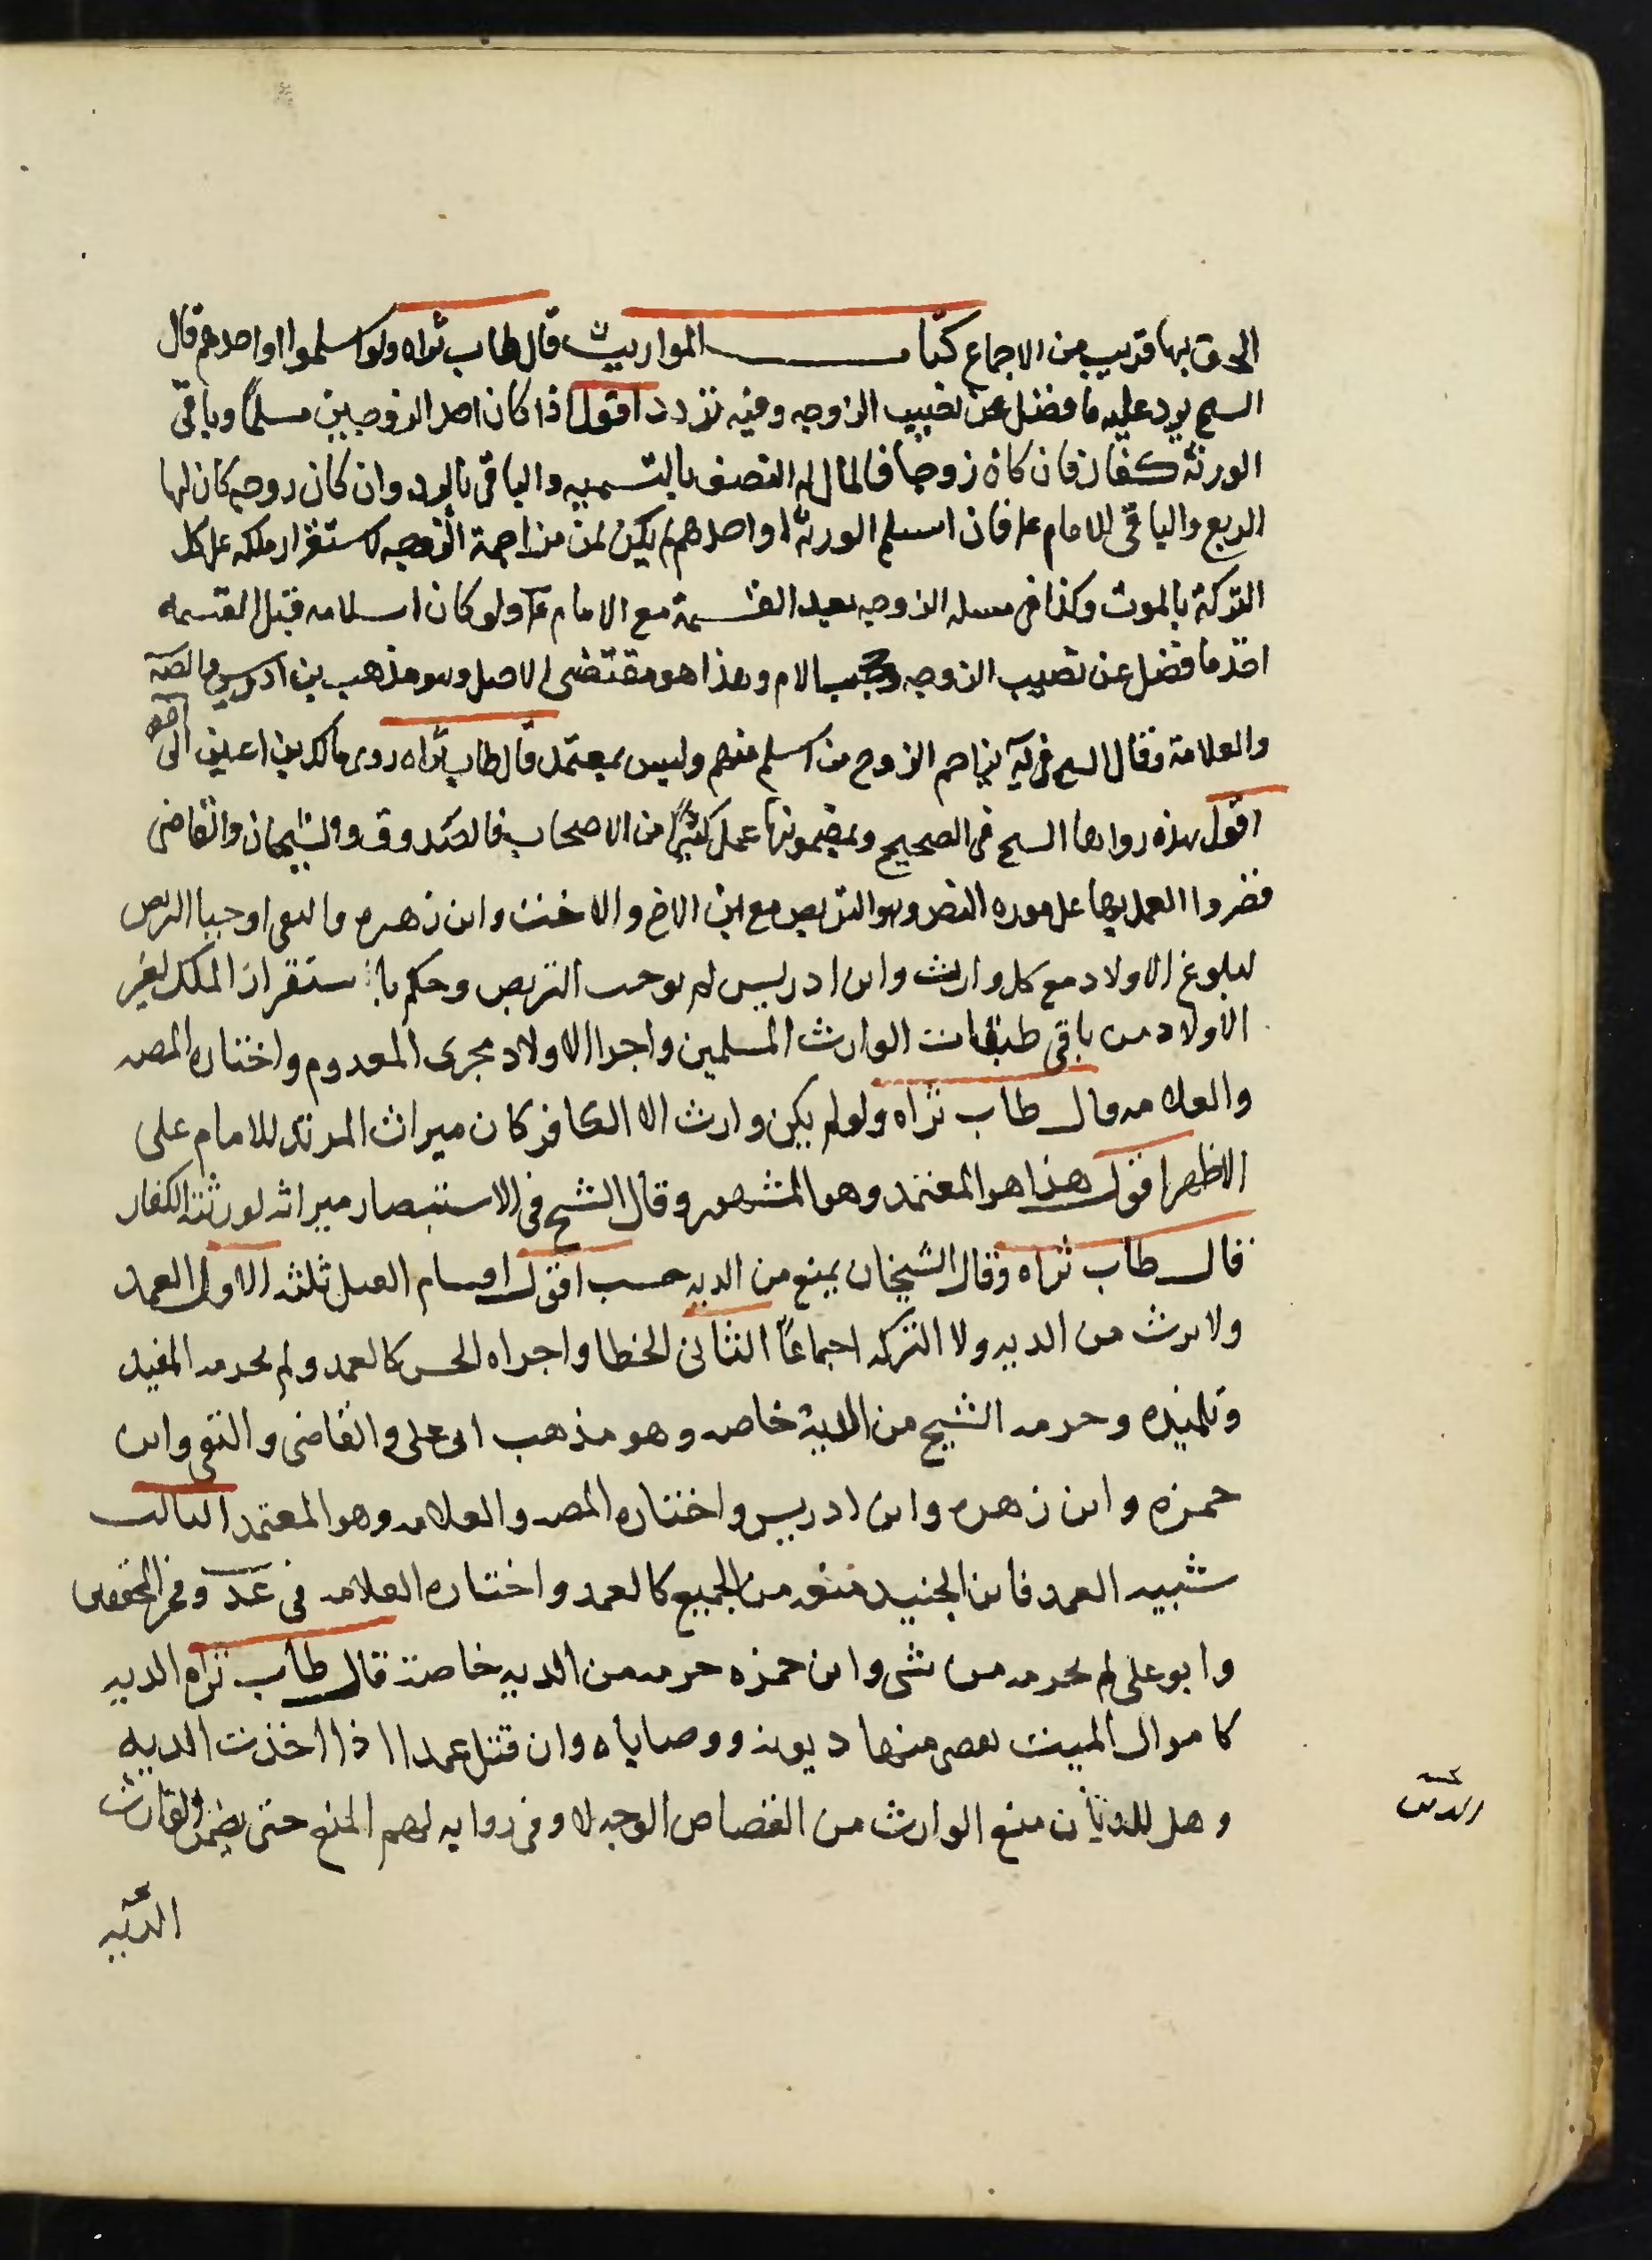 الحق بها قريب من الاجماع كتاب المواريث قال طاب ثراه ولو اسلموا او احدهم قال
الشيخ يرد عليه ما فضل عن نصيب الزوجه وفيه تردد اقول اذا كان احد الزوجين مسلما وباقي
الورثة كفار فان كان زوجا فالمال له النصف بالتسميه والباقي بالرد وان كان زوجه كان لها
الربع والباقي للامام ع فان اسلم الورثة او احدهم لم يكن لمن مزاحمة الزوجه لاستقرار ملكه على كل
التركة بالموت وكذا في مسله الزوجه بعد القسمة مع الامام ع ولو كان اسلامه قبل القسمه
اخذ ما فضل عن نصيب الزوجه وهذا هو مقتضى الاصل وهو مذهب بن ادريس والمصه
والعلامة وقال الشيخ في يه يزاحم الزوج من اسلم منهم وليس بمعتمد قال طاب ثراه روى مالك بن اعين الى اخره
اقول هذه رواها الشيخ في الصحيح وبمضمونها عمل كثيرا من الاصحاب فالصدوق والشيخان والقاضي
قصروا العمل بها على مورد النص وهو التربص مع ابن الاخ والاخت وابن زهره والتقى اوجبا التربص
لبلوغ الاولاد مع كل وارث وابن ادريس لم يوجب التربص وحكم باستقرار الملك لغير
الاولاد من باقي طبقات الوارث المسلمين واجرا الاولاد مجرى المعدوم واختاره المصه
والعلامه قال طاب ثراه ولو لم يكن وارث الا الكافر كان ميراث المرتد للامام على
الاظهر اقول هذا هو المعتمد وهو المشهور وقال الشيخ في الاستبصار ميراثه لورثته الكفار
قال طاب ثراه وقال الشيخان يمنع من الديه حسب اقول اقسام القتل ثلثه الاول العمد
ولا يرث من الديه ولا التركه اجماعا الثاني الخطا واجراه الحسن كالعمد ولم يحرمه المفيد
وتلميذه وحرمه الشيخ من الدية خاصه وهو مذهب ابي علي والقاضي والتقى وابن
حمزه وابن زهره وابن ادريس واختاره المصه والعلامه وهو المعتمد الثالث
شبيه العمد فابن الجنيد منعه من الجميع كالعمد واختاره العلامه في عد وفخر المحققين
وابو علي لم يحرمه من شي وابن حمزه حرمه من الديه خاصة قال طاب ثراه الديه
كاموال الميت يقضى منها ديونه ووصاياه وان قتل عمدا اذا اخذت الديه
وهل للديان منع الوارث من القصاص الوجه لا وفي روايه لهم المنع حتى يضمن الوارث
الديه